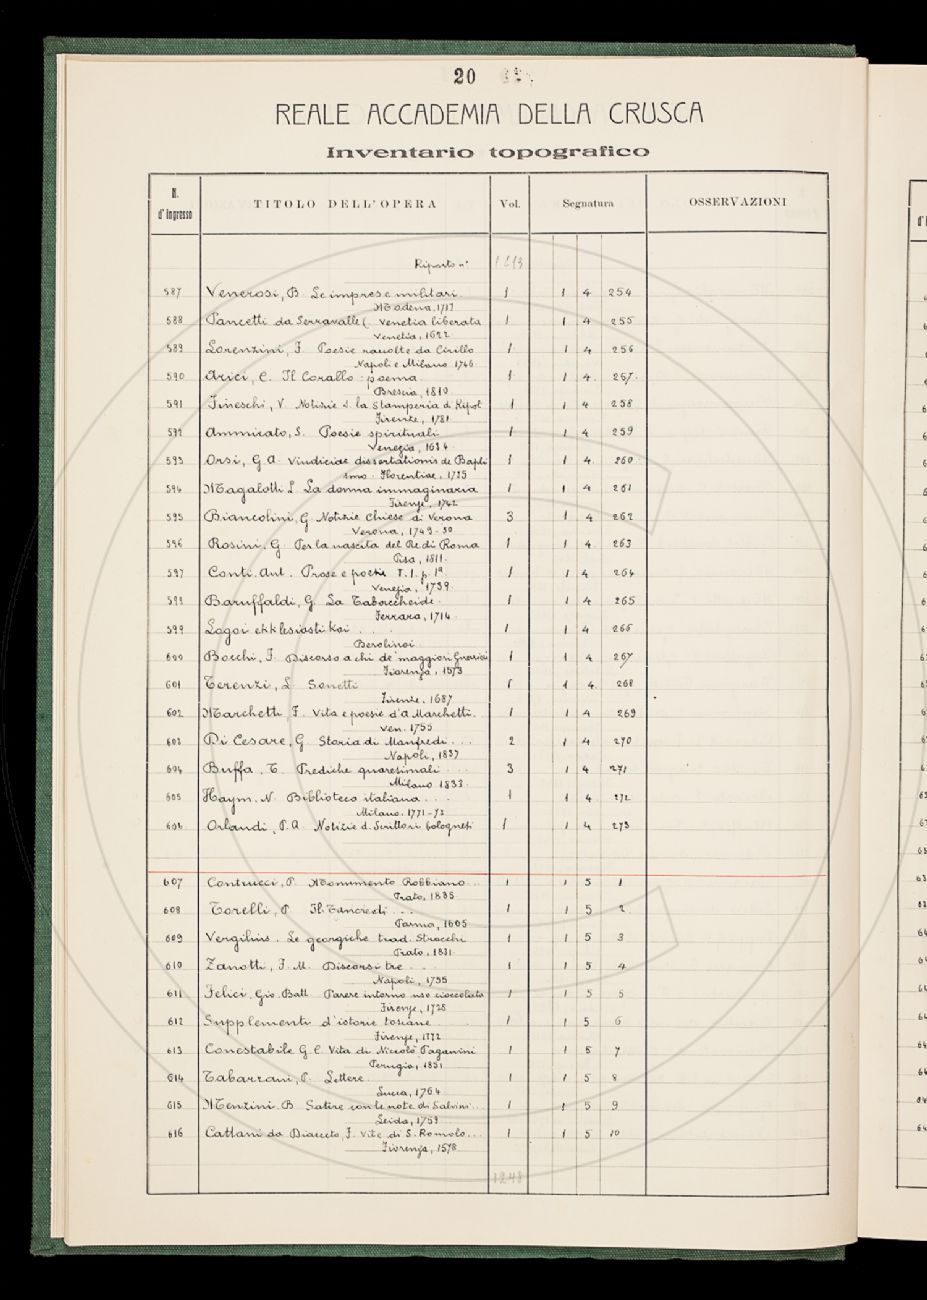 20
REALE ACCADEMIA DELLA CRUSCA
Inventario topografico
N. d'Ingresso TITOLO DELL'OPERA Vol. Segnatura OSSERVAZIONI
Riporto n°
587 Venerosi, B. Le imprese militari. 1 1 4 254
Modena, 1717
588 Pancetti da Serravalle C. Venetia liberata 1 1 4 255
Venetia, 1622
589 Lorenzini, F. Poesie raccolte da Cirillo 1 1 4 256
Napoli e Milano 1746
590 Arici, C. Il Corallo: poema. 1 1 4 257
Brescia, 1810
591 Fineschi, V. Notizie s. la Stamperia d. Ripol 1 1 4 258
Firenze, 1781
592 Ammirato, S. Poesie spirituali 1 1 4 259
Venezia, 1634
593 Orsi, G. A. Vindiciae dissertationis de Bapti 1 1 4 260
smo. Florentiae, 1735
594 Magalotti L. La donna immaginaria 1 1 4 261
Firenze, 1762
595 Biancolini, G. Notizie Chiese di Verona 3 1 4 262
Verona, 1749-50
596 Rosini, G. Per la nascita del Re di Roma 1 1 4 263
Pisa, 1811.
597 Conti. Ant. Prose e poesie T. I. p. 1ª 1 1 4 264
Venezia, 1739.
598 Baruffaldi, G. La Tabaccheide. 1 1 4 265
Ferrara, 1714.
599 Logoi ekklesiastikoi . . . 1 1 4 266
Berolinoi
600 Bocchi, F. Discorso a chi de' maggiori Guerrieri 1 1 4 267
Fiorenza, 1573
601 Terenzi, L. Sonetti 1 1 4 268
Firenze, 1687
602 Marchetti, F. Vita e poesie d'A. Marchetti. 1 1 4 269
Ven. 1755
603 Di Cesare, G. Storia di Manfredi . . . 2 1 4 270
Napoli, 1837
604 Buffa, T. Prediche quaresimali . . . 3 1 4 271
Milano 1833
605 Haym. N. Biblioteca italiana . . . 1 1 4 272
Milano. 1771-73
606 Orlandi, P. A. Notizie d. Scrittori bolognesi 1 1 4 273
607 Contrucci, P. Monumento Robbiano... 1 1 5 1
Prato, 1835
608 Torelli, P. Il Tancredi . . . 1 1 5 2
Parma, 1605
609 Vergilius. Le georgiche trad. Strocchi 1 1 5 3
Prato, 1831.
610 Zanotti, F. M. Discorsi tre . . . 1 1 5 4
Napoli, 1755
611 Felici, Gio. Batt. Parere intorno uso cioccolata 1 1 5 5
Firenze, 1728
612 Supplementi d'istorie toscane 1 1 5 6
Firenze, 1772
613 Conestabile G. C. Vita di Niccolò Paganini 1 1 5 7
Perugia, 1851
614 Tabarrani, P. Lettere 1 1 5 8
Lucca, 1764
615 Menzini. B. Satire con le note di Salvini... 1 1 5 9
Leida, 1759
616 Cattani da Diacceto, F. Vite di S. Romolo... 1 1 5 10
Fiorenza, 1578
1248